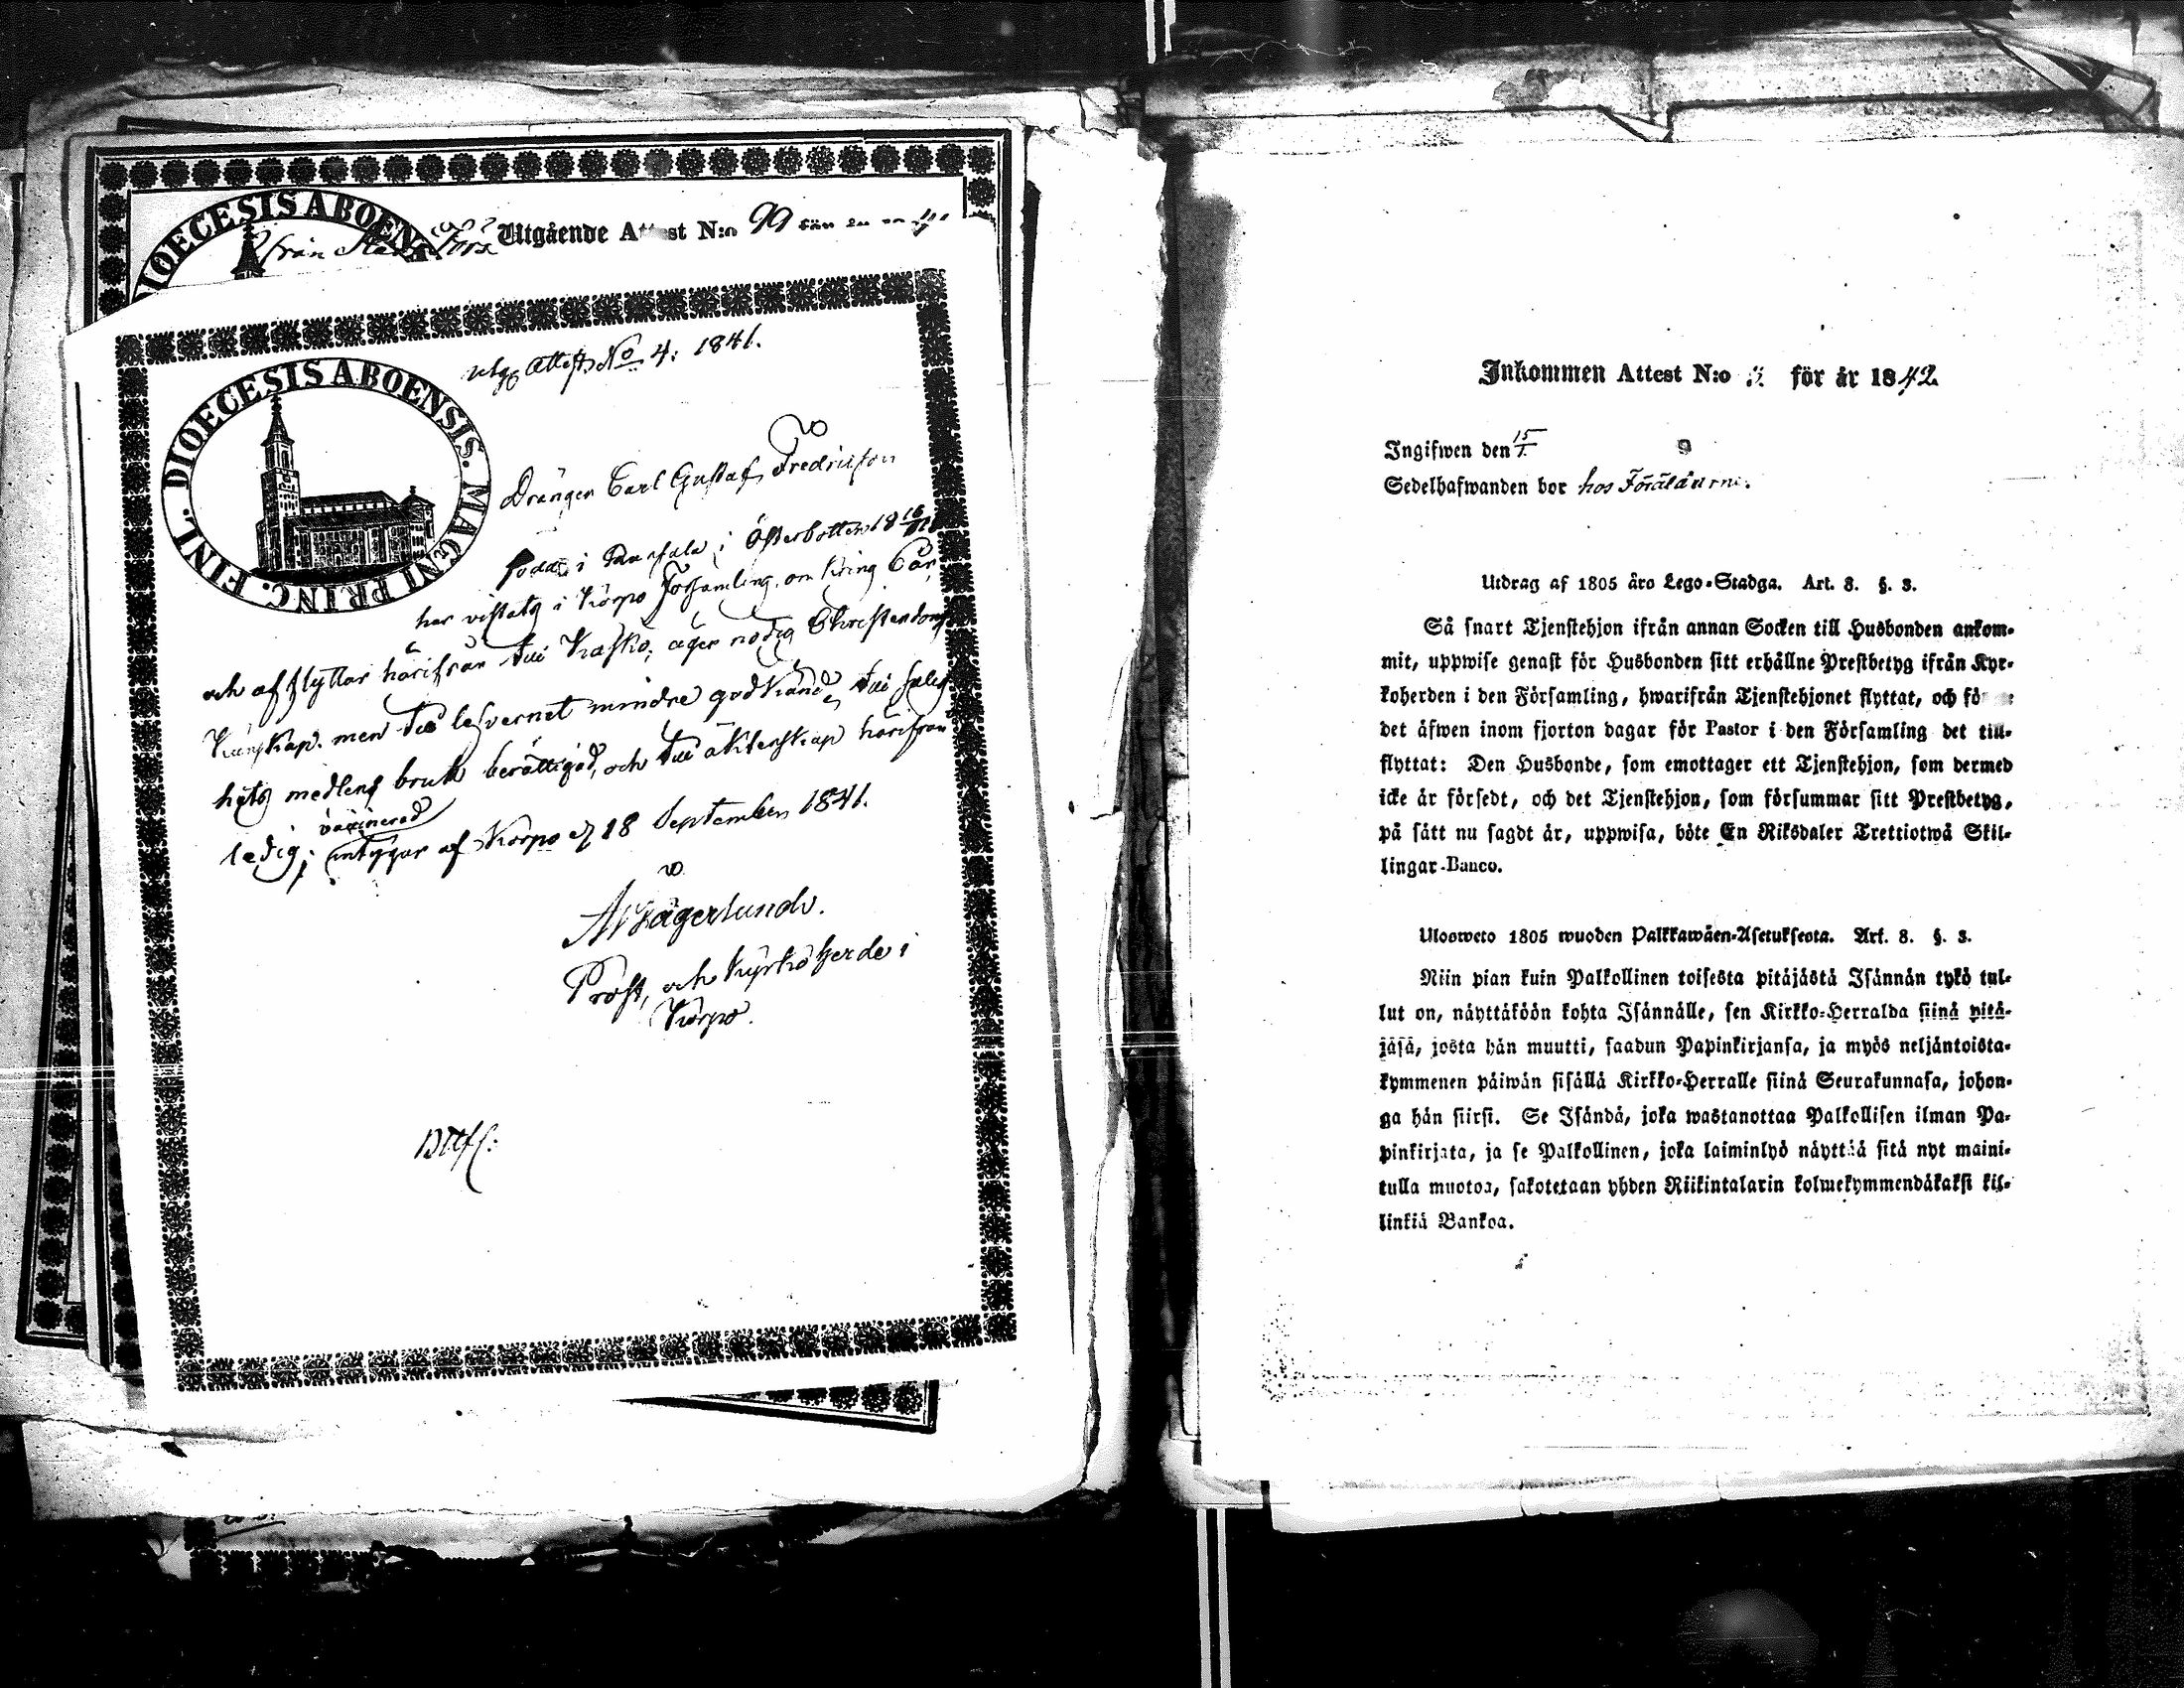 DIOECESIS ABOEN
från
Utgående Attest N:o 99
utg. Attest No 4. 1841.
DIOECESIS ABOENSIS. MAGNI PRINC. FINL.
Drängen Carl Gustaf Fredricsson
född i i Österbotten 18
har vistats i Korpo Församling, omkring
och afflyttar härifrån till Kaskö, äger nödig Christendoms
Kunskap. men till lefvernet mindre godkänd, till salig
hets medlens bruk berättigad, och till äktenskap härifrån
vaccinerad
ledig; intygar af Korpo d 18 September 1841.
Prost, och Kyrkoherde i
Korpo.
Inkommen Attest N:o 3 för år 1842
Ingifwen den 15/1
Sedelhafwanden bor hos Föräldrarne.
Utdrag af 1805 åro Lego-Stadga. Art. 8. §. 3.
Så snart Tjenstehjon ifrån annan Socken till Husbonden ankom-
mit, uppwise genast för Husbonden sitt erhållne Prestbetyg ifrån Kyr-
koherden i den Församling, hwarifrån Tjenstehjonet flyttat, och
det äfwen inom fjorton dagar för Pastor i den Församling det till-
flyttat: Den Husbonde, som emottager ett Tjenstehjon, som dermed
icke är försedt, och det Tjenstehjon, som försummar sitt Prestbetyg,
på sätt nu sagdt är, uppwisa, böte En Riksdaler Trettiotwå Skil-
lingar Banco.
Uloosweto 1805 wuoden Palkkawäen-Asetuksesta. Art. 8. §. 3.
Niin pian kuin Palkollinen toisesta pitäjästä Isännän tykö tul-
lut on, näyttäköön kohta Isännälle, sen Kirkko-Herralda siinä pitä-
jäsä, josta hän muutti, saadun Papinkirjansa, ja myös neljäntoista-
kymmenen päiwän sisällä Kirkko-Herralle siinä Seurakunnasa, johon-
ga hän siirsi. Se Isändä, joka wastanottaa Palkollisen ilman Pa-
pinkirjata, ja se Palkollinen, joka laiminlyö näyttää sitä nyt maini-
tulla muotoa, sakotetaan yhden Riikintalarin kolmekymmendäkaksi kil-
linkiä Bankoa.